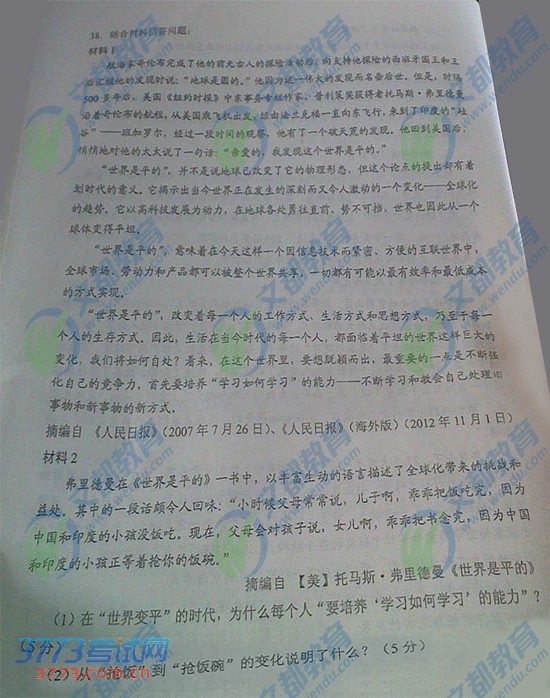 38. 结合材料回答问题：
材料1
航海家哥伦布完成了他的前无古人的探险活动后，向支持他探险的西班牙国王和王
后汇报他的发现时说：“地球是圆的。”他因为这一伟大的发现而名垂后世。但是，时隔
500多年后，美国《纽约时报》中东事务专栏作家、普利策奖获得者托马斯·弗里德曼
沿着哥伦布的航程，从美国乘飞机出发，经由法兰克福一直向东飞行，来到了印度的“硅
谷”——班加罗尔。经过一段时间的观察，他有了一个破天荒的发现。他回到美国后，
悄悄地对他的太太说了一句话：“亲爱的，我发现这个世界是平的。”
“世界是平的”，并不是说地球已改变了它的物理形态，但这个论点的提出却有着
划时代的意义。它揭示出当今世界正在发生的深刻而又令人激动的一个变化——全球化
的趋势。它以高科技发展为动力，在地球各处勇往直前，势不可挡，世界也因此从一个
球体变得平坦。
“世界是平的”，意味着在今天这样一个因信息技术而紧密、方便的互联世界中，
全球市场、劳动力和产品都可以被整个世界共享，一切都有可能以最有效率和最低成本
的方式实现。
“世界是平的”，改变着每一个人的工作方式、生活方式和思想方式，乃至于每一
个人的生存方式。因此，生活在当今时代的每一个人，都面临着平坦的世界这样巨大的
变化，我们将如何自处？看来，在这个世界里，要想脱颖而出，最重要的一点是不断强
化自己的竞争力，首先要培养“学习如何学习”的能力——不断学习和教会自己处理旧
事物和新事物的新方式。
摘编自《人民日报》（2007年7月26日）、《人民日报》（海外版）（2012年11月1日）
材料2
弗里德曼在《世界是平的》一书中，以丰富生动的语言描述了全球化带来的挑战和
益处。其中的一段话颇令人回味：“小时候父母常常说，儿子啊，乖乖把饭吃完，因为
中国和印度的小孩没饭吃。现在，父母会对孩子说，女儿啊，乖乖把书念完，因为中国
和印度的小孩正等着抢你的饭碗。”
摘编自【美】托马斯·弗里德曼《世界是平的》
（1）在“世界变平”的时代，为什么每个人“要培养‘学习如何学习’的能力”？
（5分）
（2）从“抢饭”到“抢饭碗”的变化说明了什么？（5分）
3773考试网
3773.com.cn
文都教育
www.wendu.com